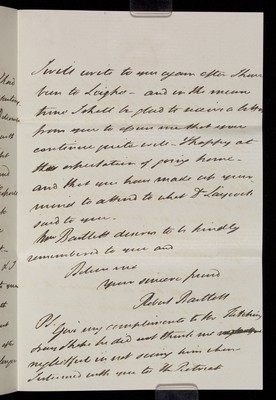 I will write to you again after I have
been to Leigh - and in the mean
time I shall be glad to receive a letter
from you to assure me that you
continue quite well - & happy at
the expectation of going home -
and that you have made up your
mind to attend to what Dr Laycock
said to you.
Mrs Bartlett desires to be kindly
remembered to you and
Believe me
Your sincere friend
Robert Bartlett
PS.
Give my compliments to
I hope he did not think me
neglectful in not seeing him when
I returned with you to the Retreat